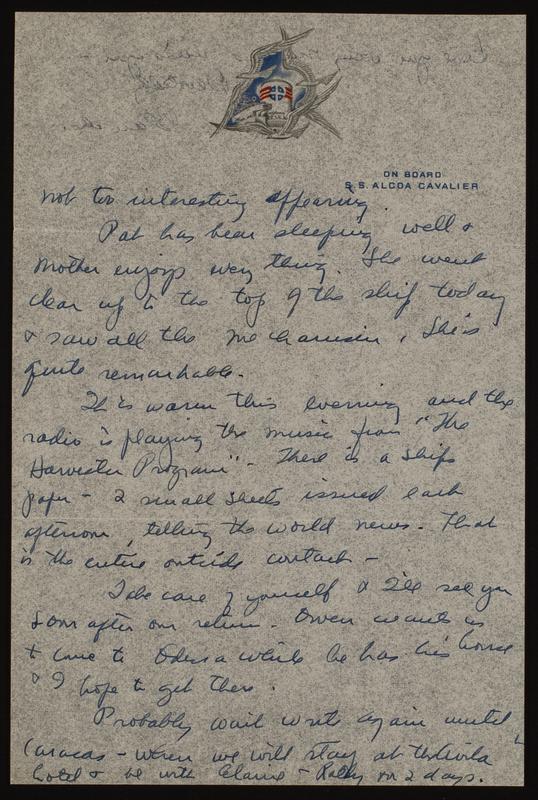 ON BOARD
S.S. ALCOA CAVALIER
not too interesting appearing.
Pat has been sleeping well &
Mother enjoys every thing. She went
clear up to the top of the ship today
& saw all the mechanism. She's
quite remarkable.
It is warm this evening and the
radio is playing the music from "The
Harvester Program" - There is a ships
paper - 2 small sheets issued each
afternoon, telling the world news. That
is the entire outside contact -
Take care of yourself & I'll see you
soon after our return. Owen wants us
to come to Odessa while he has his house
& I hope to get there.
Probably wont write again until
Caracas - where we will stay at the
hotel & be with Elaine - for 2 days.